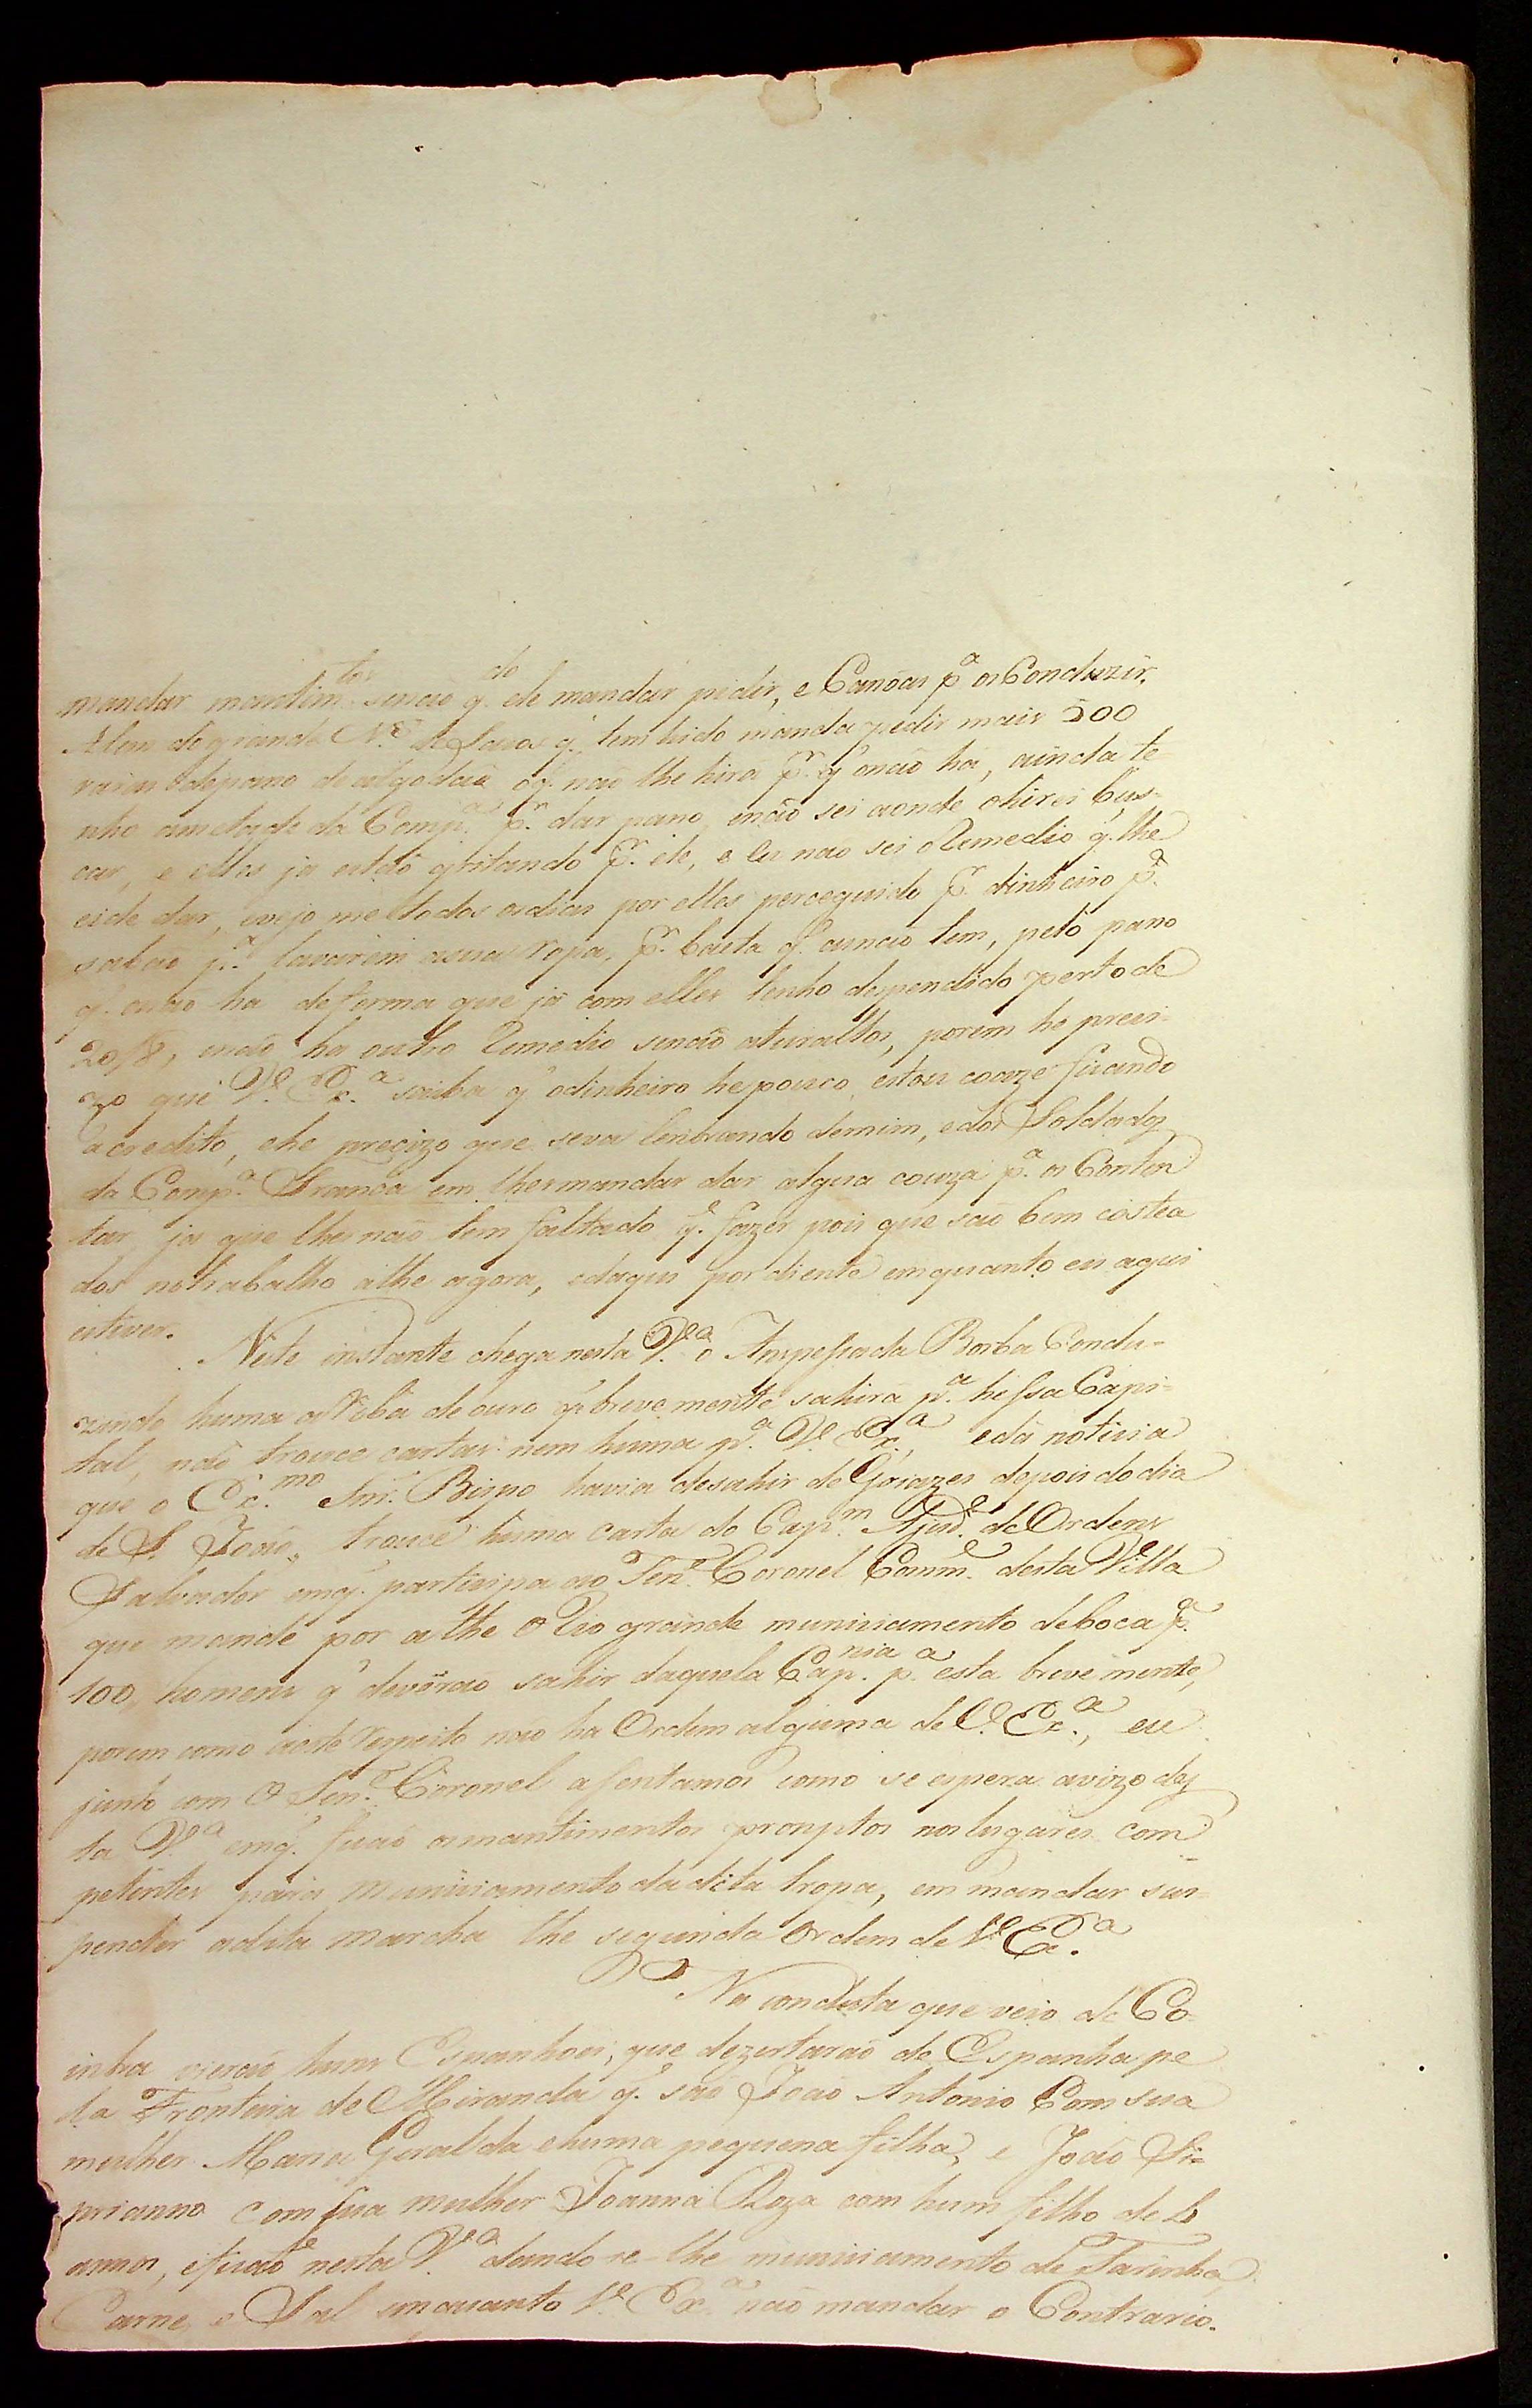 mandar mantim.tos senão q.do ele mandar pedir, e Canoas p.a os Conduzir.
Alem do grande N.o de Sacos q. tem hido manda pedir mais 500
varas de pano de algodaõ oq. naõ lhe hirá p.r q' onaõ há, ainda te-
nho ametade da Comp.a p.r dar pano, enaõ sei aonde ohirei bus-
car, e elles ja estaõ gritando p.r ele, e Eu nao sei oRemedio q. lhe
eide dar, vejo me todos osdias por elles perceguido p.r dinheiro p.a
sabaõ p.a lavarem asua ropa, p.r baeta q. aunaõ tem, pelo pano
q. onaõ ha deforma que já com elles tenho despendido perto de
20/8, enaõ ha outro Remedio senaõ aturallos, porem he preci-
zo que V. Ex.a saiba q' odinheiro hepouco, estou coaze ficando
acredito, ehe precizo que seva lenbrando demim, edos Soldados
da Comp.a Franca em lhesmandar dar algua couza p.a os Conten
tar, ja que lhes naõ tem faltado q. fazer pois que saõ bem costea
dos notrabalho athe agora, edaqui por diente emquanto eu aqui
estiver.
Neste instante chega nesta V.a o Anspessada Borba Condu-
zindo huma aRoba de ouro q' breve mente sahirá p.a hessa Capi-
tal, naõ trouce cartas nem huma p.a V. Ex.a, edá noticia
que o Ex.mo Snr. Bispo havia desahir de Goiazes depois do dia
de S. Joaõ, trouce huma carta do Cap.m Ajud.e de Ordens
Salvador emq. participa ao Ten.e Coronel Comm.e desta Villa
que mande por athe o Rio grande municiamento deboca p.a
100, homens q' deveraõ sahir daquela Cap.nia p.a esta breve mente,
porem como aeste Respeito naõ ha Ordem alguma de V. Ex.a, eu
junto com o Ten.e Coronel asentamos como se espera avizo des
ta V.a emq. ficaõ osmantimentos promptos nos lugares com
petentes para municiamento da dita tropa, em mandar sus-
pender adita marcha the segunda Ordem de V. Ex.a
Na conducta que veio de Co-
imbra vieraõ huns Espanhois, que dezertaraõ de Espanha pe
la Fronteira de Miranda q. saõ Joaõ Antonio Com sua
mulher Maria Giralda ehuma pequena filha, e Joaõ Si-
prianno com sua mulher Joanna Roza com hum filho de
annos, eficaõ nesta V.a dando se-lhe municiamento de Farinha,
Carne, e Sal emquanto V. Ex.a naõ mandar o Contrario.